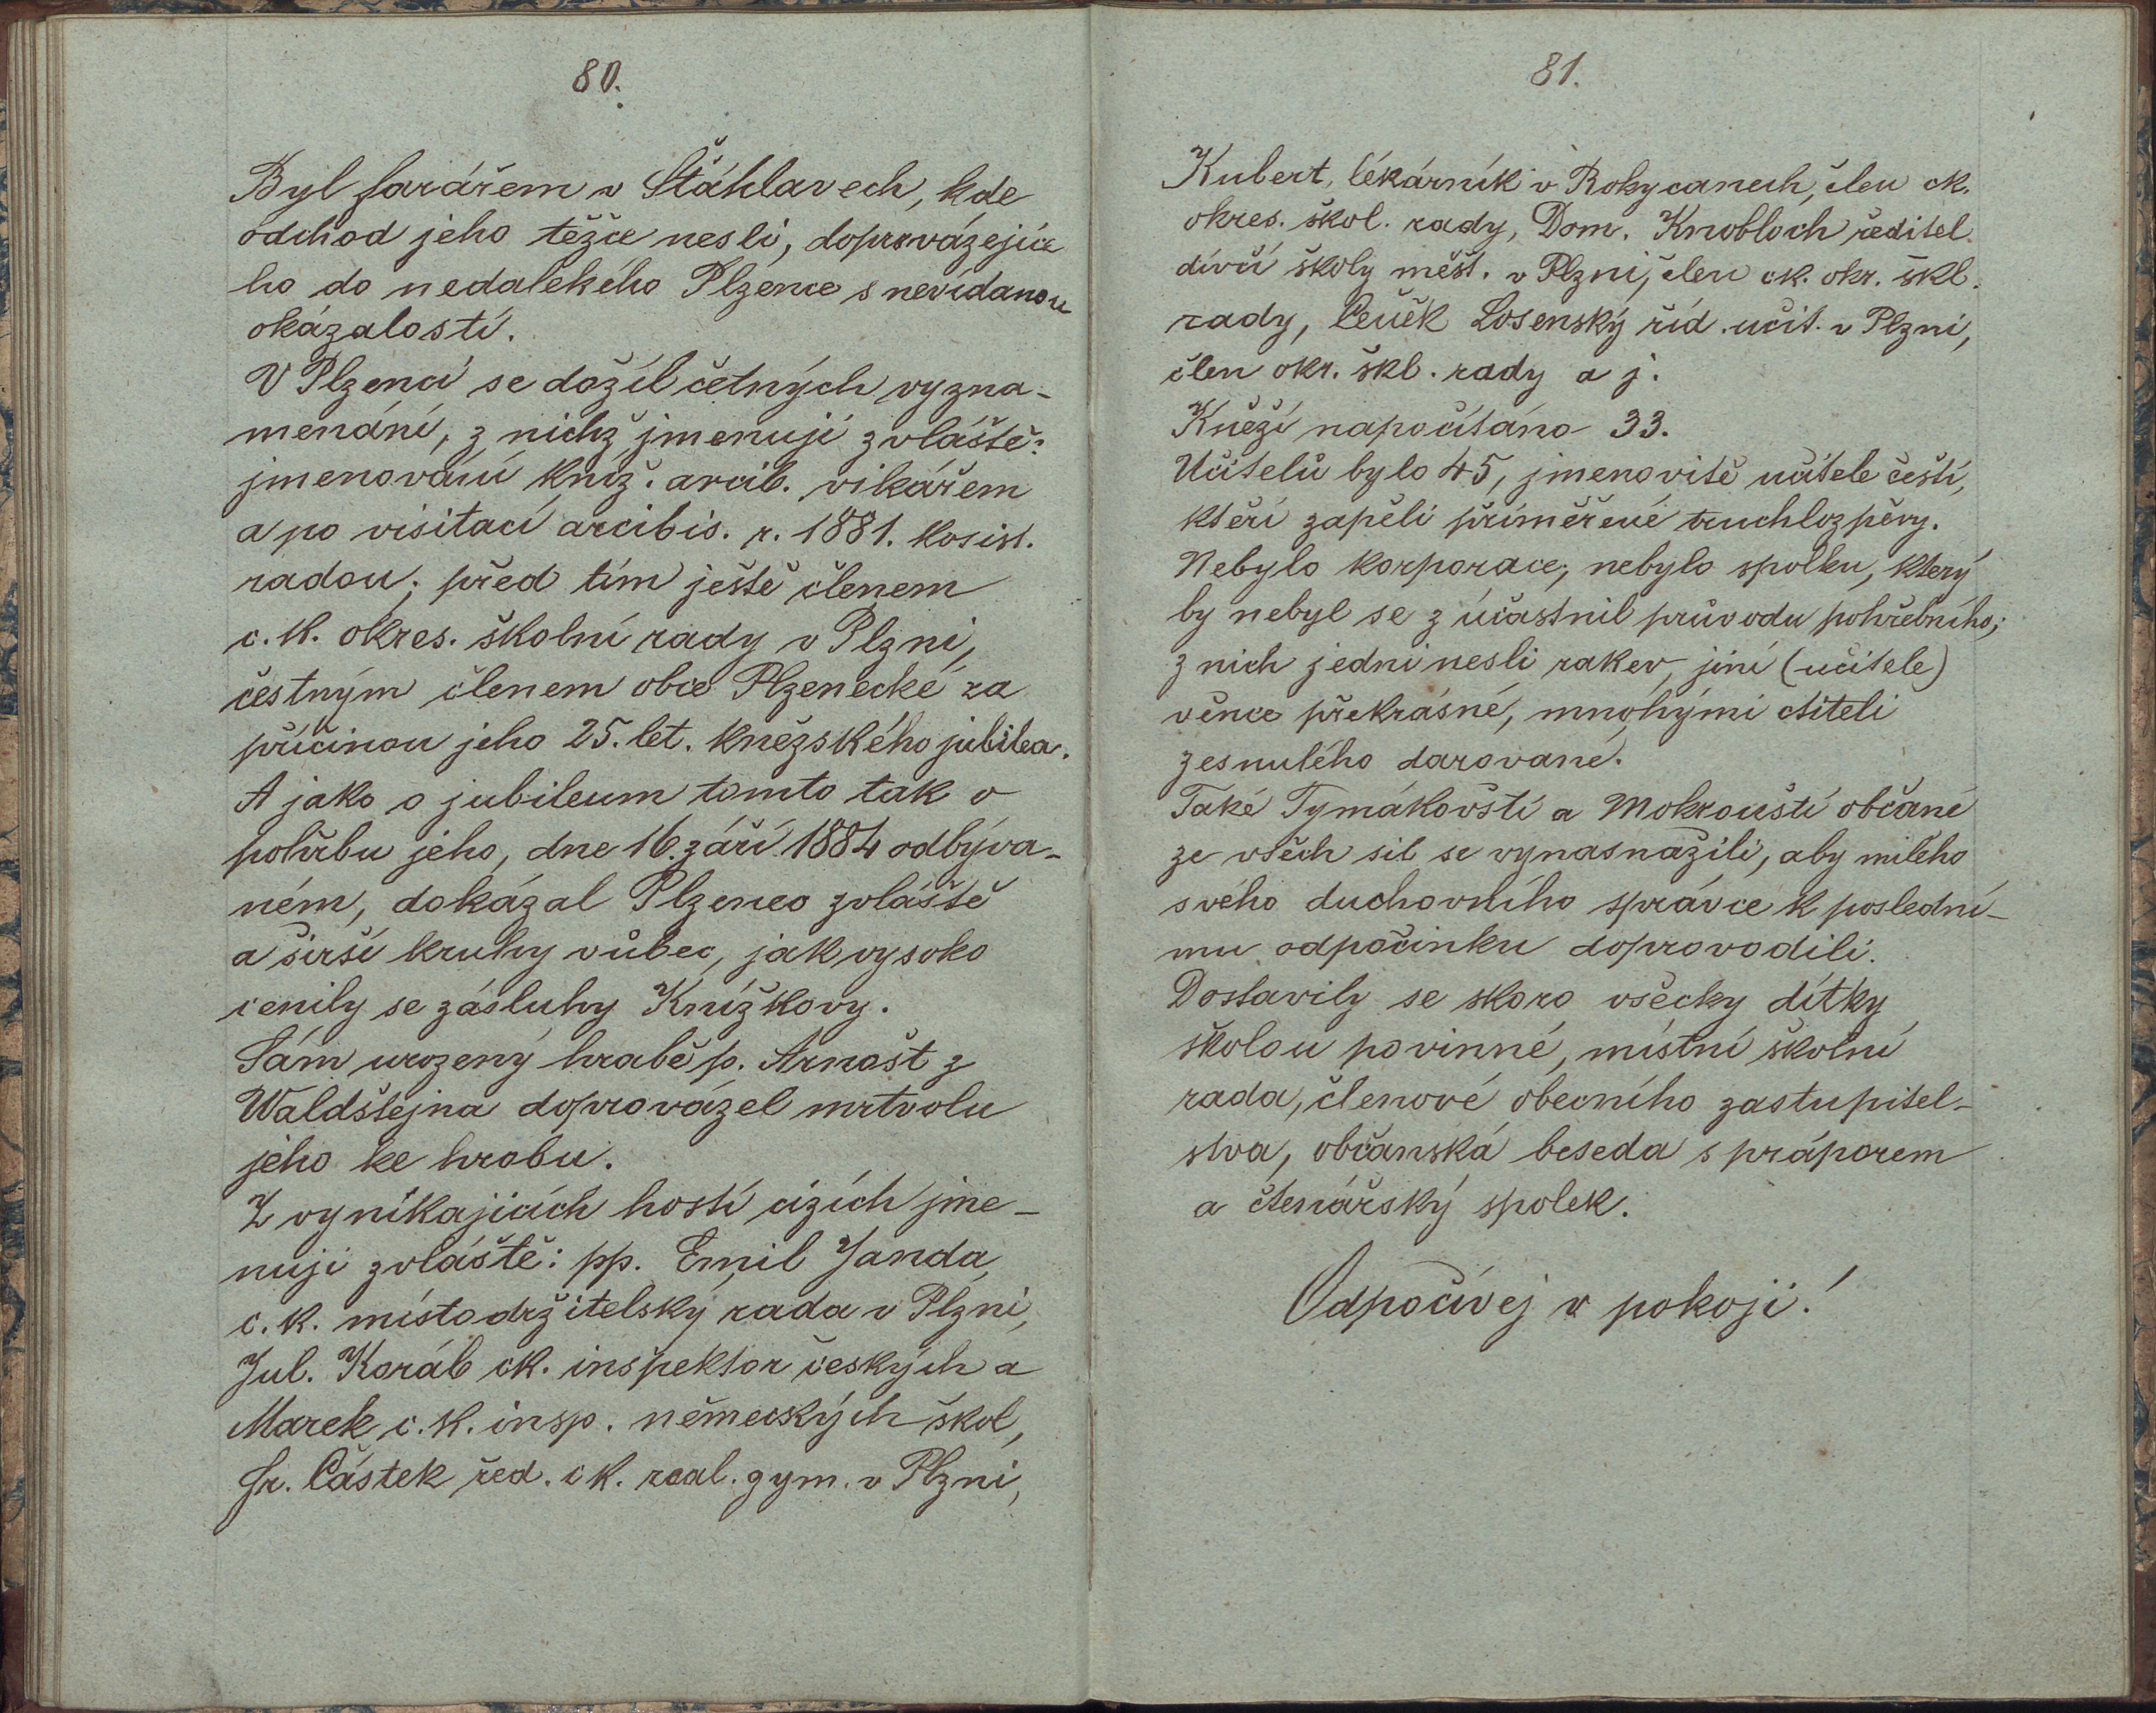 80.
Byl farářem v Štáhlavech, kde
odchod jeho těžce nesli, doprovázejíce
ho do nedalekého Plzence s nevídanou
okázalostí.
V Plzenci se dožil četných vyzna-
menání, z nichž jmenuji zvláště:
jmenování kníž. arcib. vikářem
a po visitaci arcibis. r. 1881. kosist.
radou; před tím ještě členem
c. k. okres. školní rady v Plzni,
čestným členem obce Plzenecké za
příčinou jeho 25. let. kněžského jubilea.
A jako o jubileum tomto tak o
pohřbu jeho, dne 16. září 1884 odbýva-
ném, dokázal Plzenec zvláště
a širší kruhy vůbec, jak vysoko
cenily se zásluhy Knížkovy.
Sám urozený hrabě p. Arnošt z
Waldštejna doprovázel mrtvolu
jeho ke hrobu.
Z vynikajících hostí cizích jme-
nuji zvláště: pp. Emil Janda,
c. k. místodržitelský rada v Plzni,
Jul. Koráb ck. inspektor českých a
Marek c. k. insp. německých škol,
Fr. Částek řed. c k. real. gym. v Plzni,
81.
Kubert, lékárník v Rokycanech, člen ck.
okres. škol. rady, Dom. Knobloch ředitel
dívčí školy měšť. v Plzni, člen ck. okr. škl.
rady, Čeněk Losenský říd. učit. v Plzni,
člen okr. škl. rady a j.
Kněží napočítáno 33.
Učitelů bylo 45, jmenovitě učitele čeští,
kteří zapěli přiměřené truchlozpěvy.
Nebylo korporace, nebylo spolku, který
by nebyl se zúčastnil průvodu pohřebního;
z nich jedni nesli rakev, jiní (učitele)
věnce překrásné, mnohými ctiteli
zesnulého darované.
Také Tymákovští a Mokroušti občané
ze všech sil se vynasnažili, aby milého
svého duchovního správce k poslední-
mu odpočinku doprovodili.
Dostavily se skoro všecky dítky
školou povinné, místní školní
rada, členové obecního zastupitel-
stva, občanská beseda s práporem
a čtenářský spolek.
Odpočívej v pokoji!